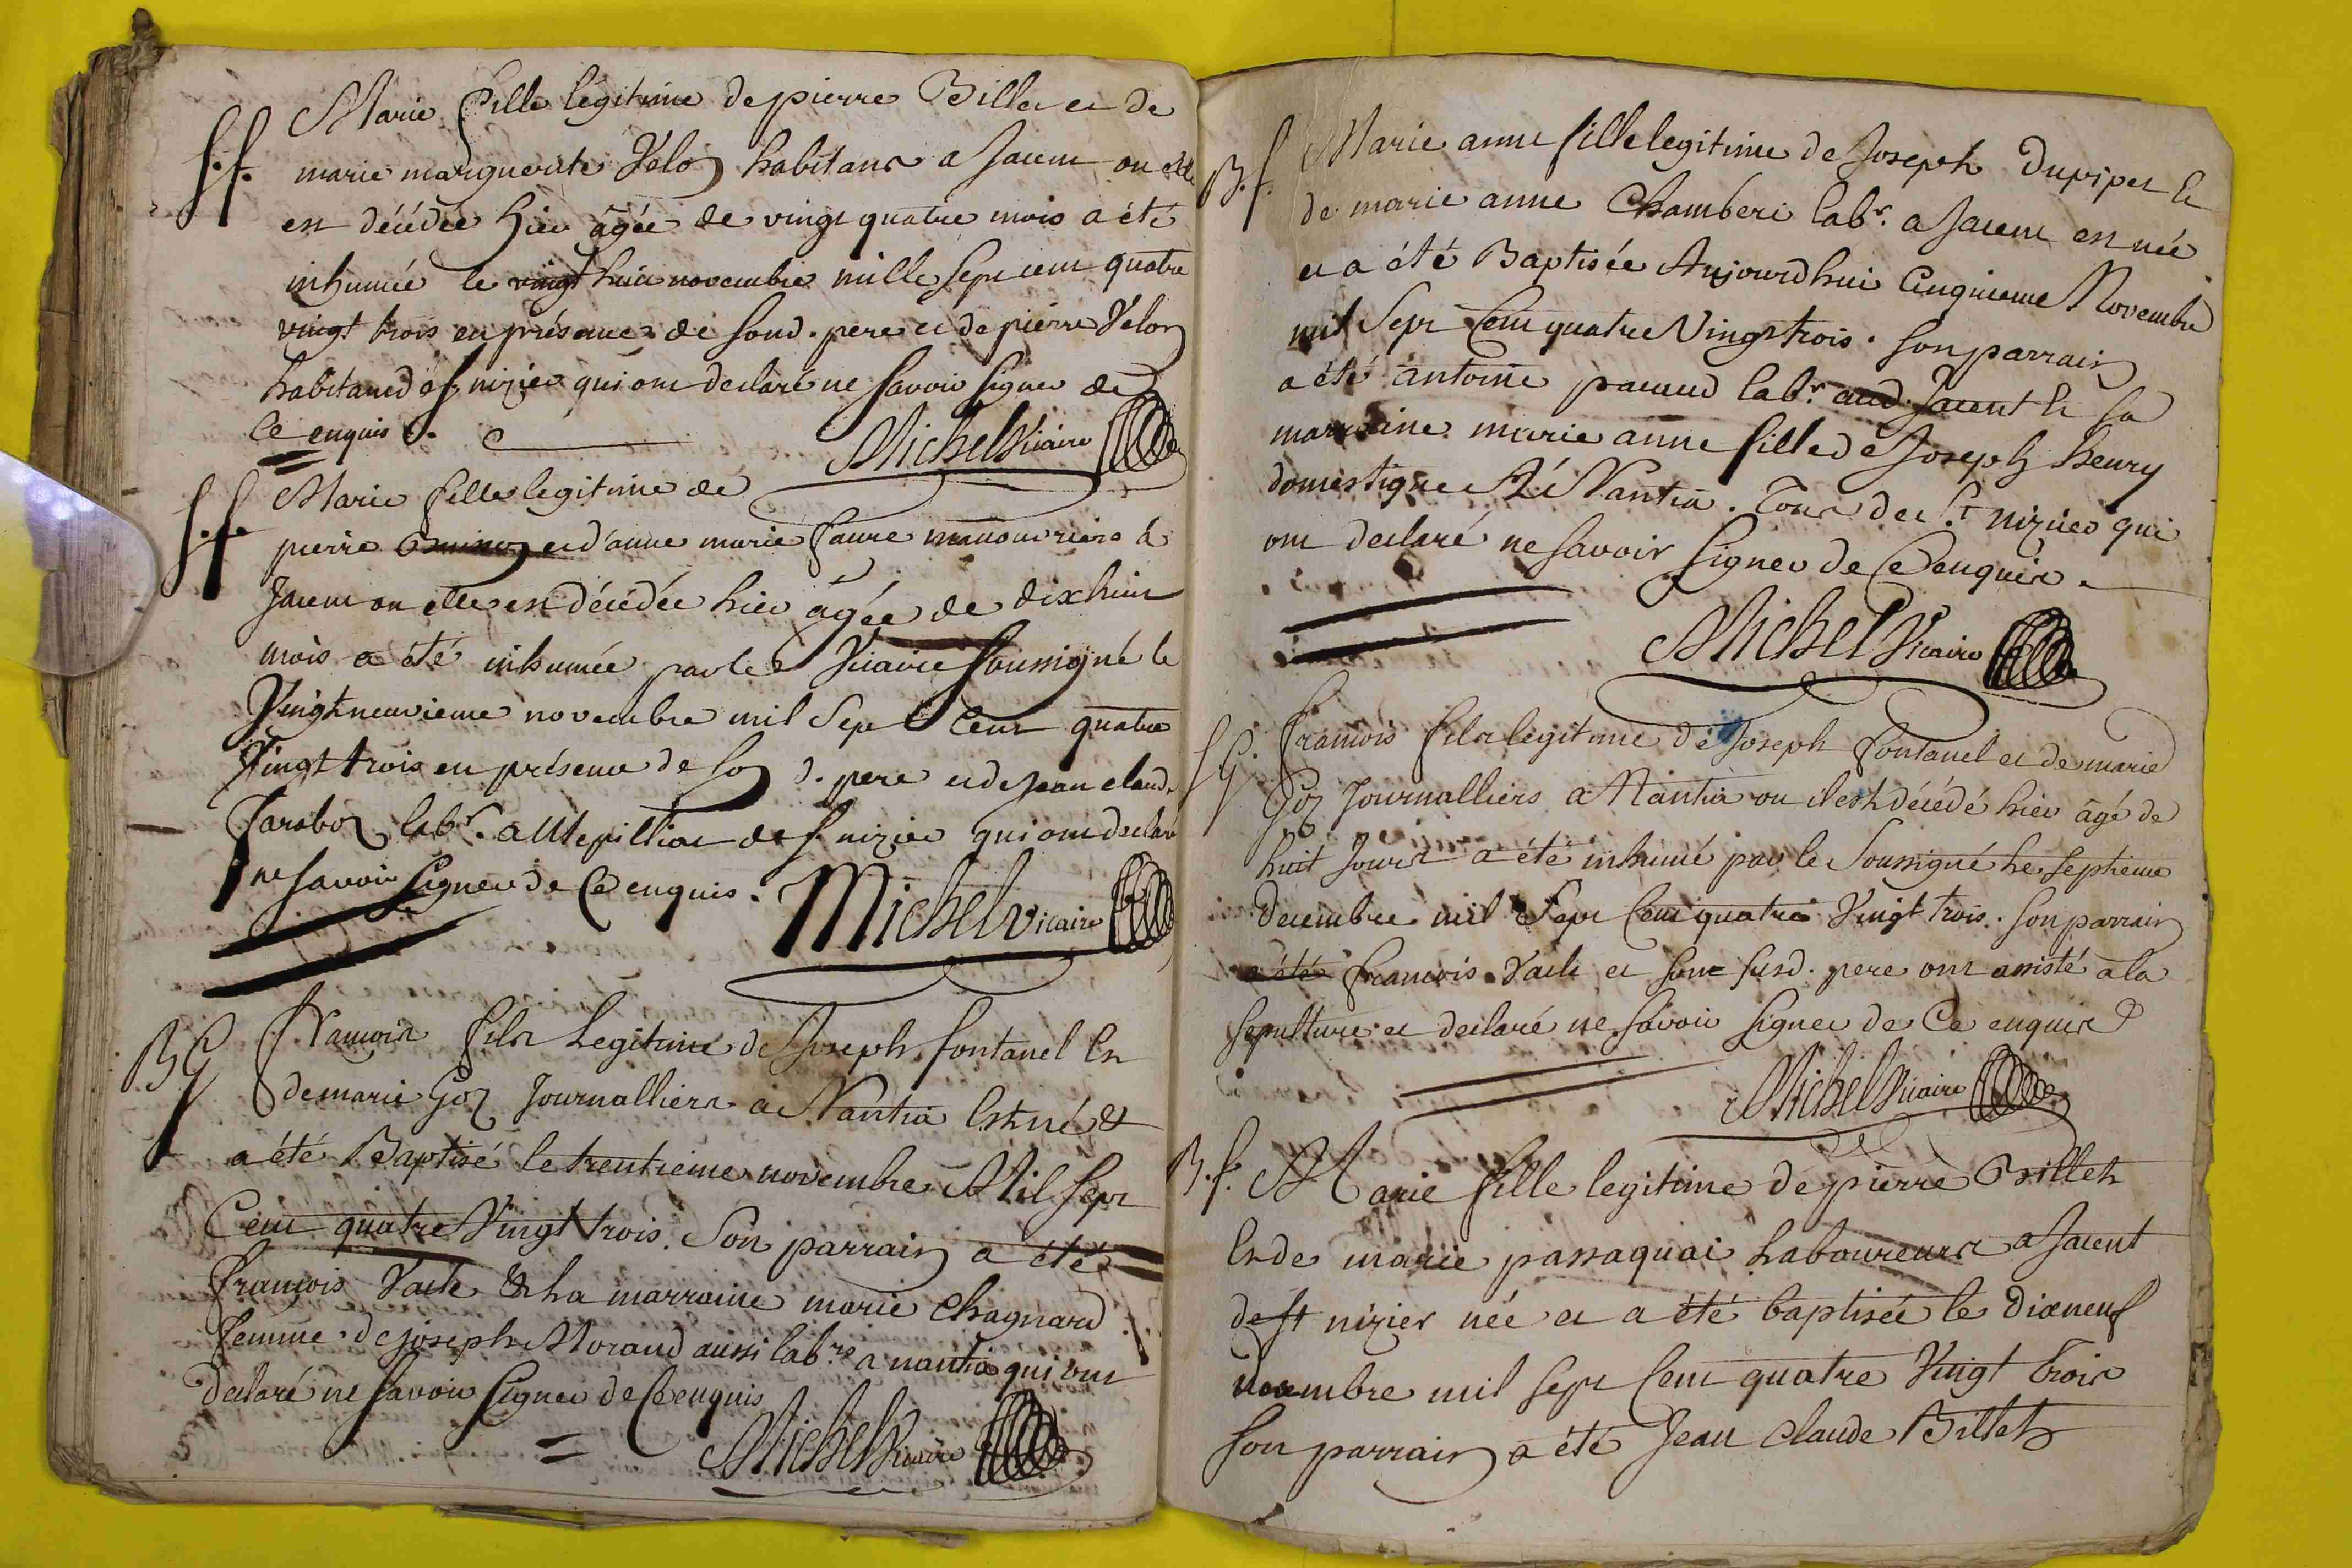 Marie fille légitime de pierre Billet et de
S.f. marie marguerite Velon habitans a Jacent ou elle
est décédée hier âgée de vingt quatre mois a été
inhumée le vingt huit novembre mille sept cent quatre
vingt trois en présence de son d. pere et de pierre Velon
habitans de st nizier qui ont declaré ne savoir signer de
ce enquis.
Michel Vicaire
S.f. Marie fille legitime de
pierre et d'anne marie faure manouvriers à
Jacent ou elle est décédée hier âgée de dixhuit
mois a été inhumée par le Vicaire soussigné le
Vingtneuvieme novembre mil Sept Cent quatre
Vingt trois en présence de son d. pere et de jean claude
labr. a de st nizier qui ont declaré
ne savoir signer de Ce enquis.
Michel Vicaire
B G François fils Legitime de Joseph fontanel Et
de marie Goz Journalliers a Nantia Est né &
a été Baptisé le trentieme novembre Mil sept
Cent quatre Vingt trois. Son parrain a été
François Vacle & La marraine marie Chagnard
femme de joseph Morand aussi labrs a nantia qui ont
declaré ne savoir signer de Ce enquis
Michel Vicaire
B.f. Marie anne fille legitime de Joseph Dupipet Et
de marie anne Chamberi labr. a Jacent est née
et a été Baptisée Aujourdhui Cinquieme Novembre
mil Sept Cent quatre Vingt trois. son parrain
a été antoine pacaud labr. aud. Jacent Et sa
marraine marie anne fille de Joseph henry
domestique A Nantia. Tous de st nizier qui
ont declaré ne savoir signer de Ce enquis.
Michel Vicaire
S G. François fils legitime de Joseph fontanel et de marie
Goz Journalliers a Nantia ou il est décédé hier âgé de
huit Jours a été inhumé par le Soussigné Le septieme
decembre mil Sept Cent quatre Vingt trois. son parrain
a été francois Vacle et son susd. pere ont assisté a la
sepulture et declaré ne savoir signer de Ce enquis
Michel Vicaire
B.f. Marie fille legitime de pierre Billet
Et de marie passaquai Laboureurs a Jacent
de st nizier née et a été baptisée le dixneuf
decembre mil sept Cent quatre Vingt trois
son parrain a été Jean Claude Billet